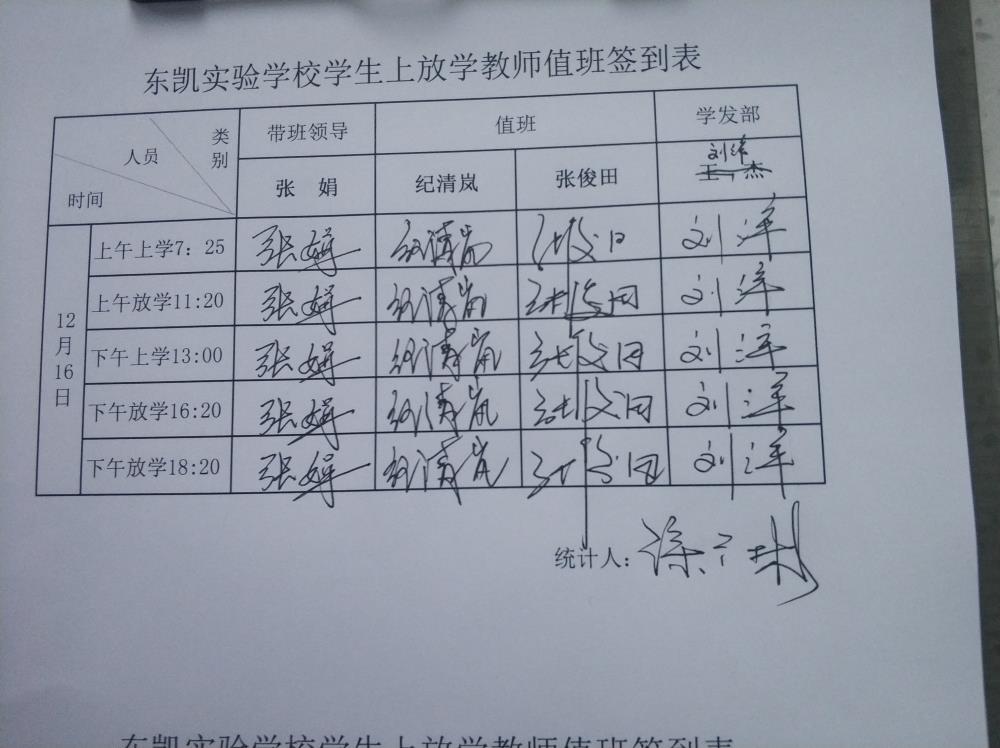 东凯实验学校学生上放学教师值班签到表
类别 人员 时间 带班领导 值班 学发部
刘洋
张 娟 纪清岚 张俊田 王 杰
12月16日
上午上学7：25 张娟 纪清岚 张俊田 刘洋
上午放学11:20 张娟 纪清岚 张俊田 刘洋
下午上学13:00 张娟 纪清岚 张俊田 刘洋
下午放学16:20 张娟 纪清岚 张俊田 刘洋
下午放学18:20 张娟 纪清岚 张俊田 刘洋
统计人：
东凯实验学校学生上放学教师值班签到表